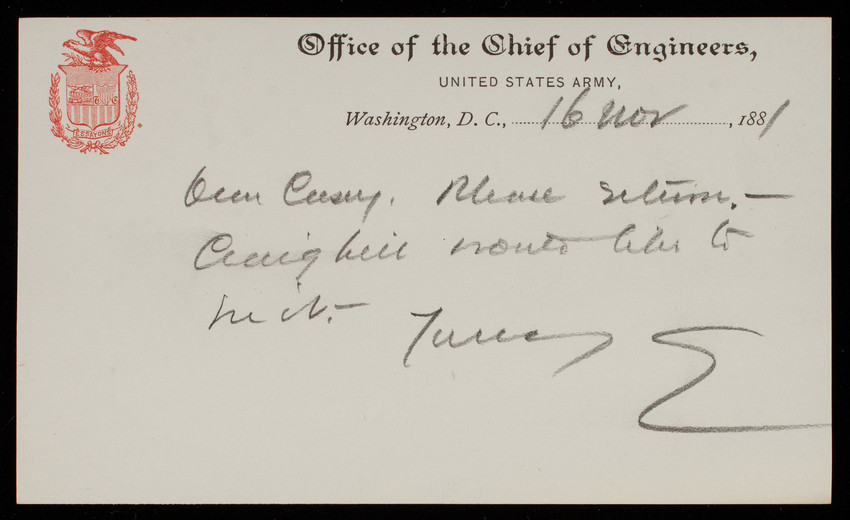 Office of the Chief of Engineers,
UNITED STATES ARMY,
Washington, D. C., 16 Nov, 1881
ESSAYONS
Dear Casey. Please return. —
Craighill would like to
see it. —